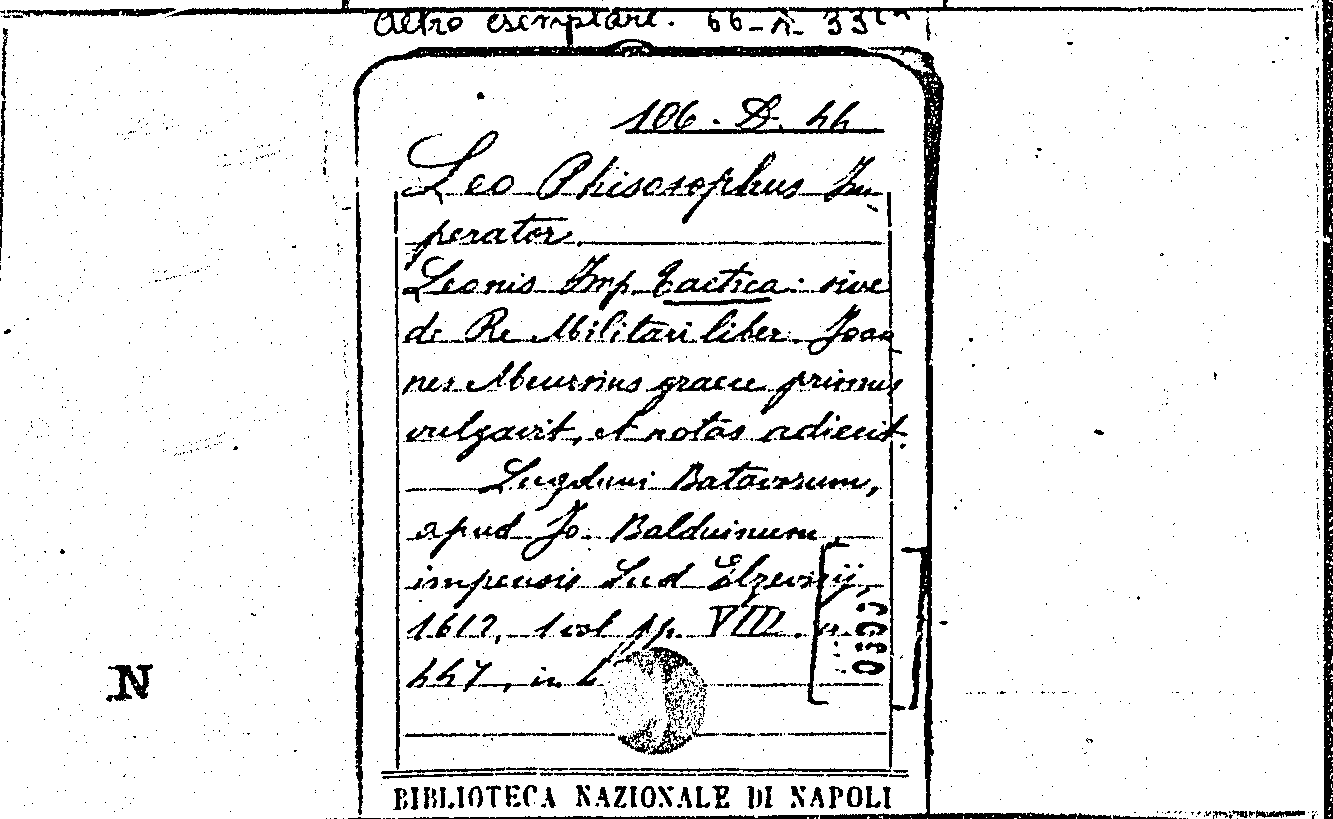 Altro esemplare. 66-A. 33
106. D. 44
Leo Phisosophus Im-
perator
Leonis Imp. Tactica: sive
de Re Militari liber. Joan
nes Meursius graece primus
vulgavit, et notas adiecit.
Lugduni Batavorum,
apud Jo. Balduinum
impensis Lud Elzevirij,
1612, 1 vol pp. VIII.
447, in 4
N
BIBLIOTECA NAZIONALE DI NAPOLI